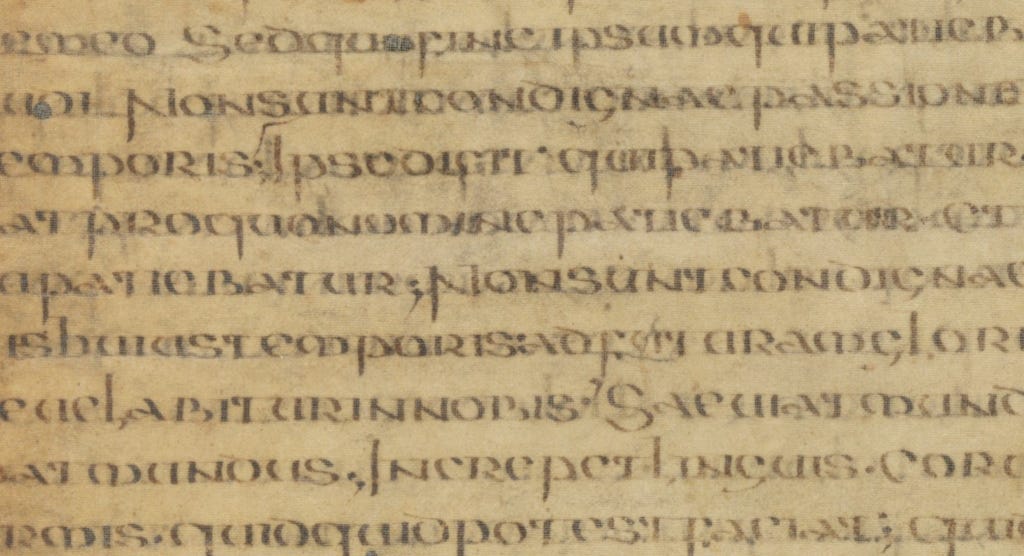 ermeo Sedquofineipsumquipatieb
uol Nonsuntcondignaepassione
emporis; Ipsedicit quipatiebatur
at proquonominepatiebatur et
apatiebatur; Nonsuntcondignae
ishuiustemporis adfuturamglori
euelabiturinnobis; Saeuiatmund
atmundus; Increpetlinguis. Coru
rmis. quidquidpotestfaciat; quid